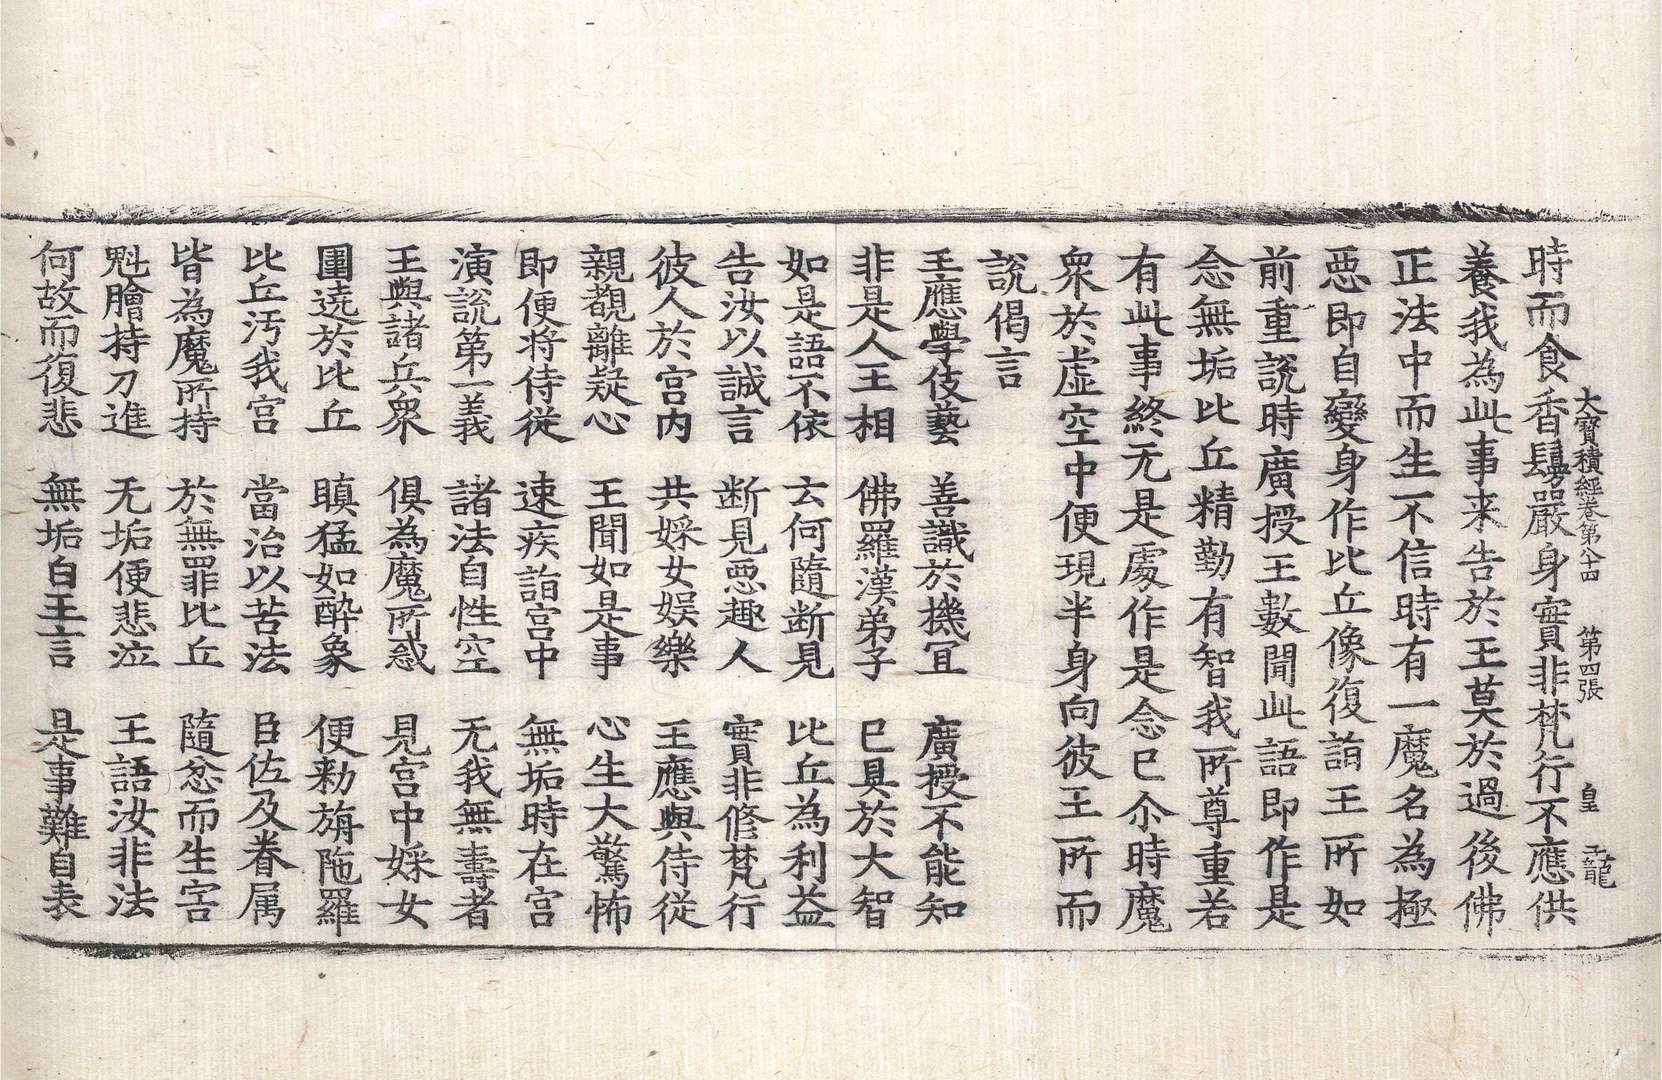 大寶積經卷第八十四 第四張 皇
時而食香鬘嚴身實非梵行不應供
養我為此事来告於王莫於過後佛
正法中而生不信時有一魔名為極
惡即自變身作比丘像復詣王所如
前重說時廣授王數聞此語即作是
念無垢比丘精勤有智我所尊重若
有此事終无是處作是念已尒時魔
衆於虛空中便現半身向彼王所而
說偈言
王應學伎藝 善識於機冝 廣授不能知
非是人王相 佛羅漢弟子 已具於大智
如是語不依 云何隨断見 比丘為利益
告汝以誠言 断見惡趣人 實非修梵行
彼人於宫内 共婇女娱樂 王應與侍従
親覩離疑心 王聞如是事 心生大驚怖
即便将侍従 速疾詣宫中 無垢時在宫
演說第一義 諸法自性空 无我無壽者
王與諸兵衆 俱為魔所惑 見宫中婇女
圍遶於比丘 瞋猛如醉象 便勑旃陁羅
比丘汚我宫 當治以苦法 臣佐及眷属
皆為魔所持 於無罪比丘 隨忿而生害
魁膾持刀進 无垢便悲泣 王語汝非法
何故而復悲 無垢白王言 是事難自表